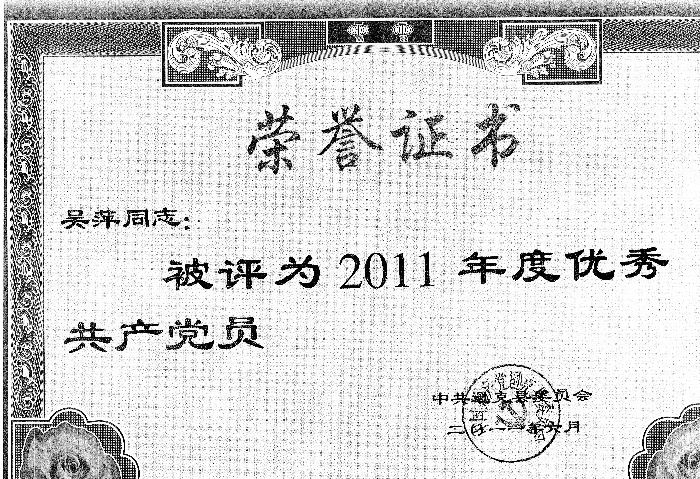 荣誉证书
吴萍同志：
被评为2011年度优秀
共产党员
中共通克县委员会
二〇一一年六月